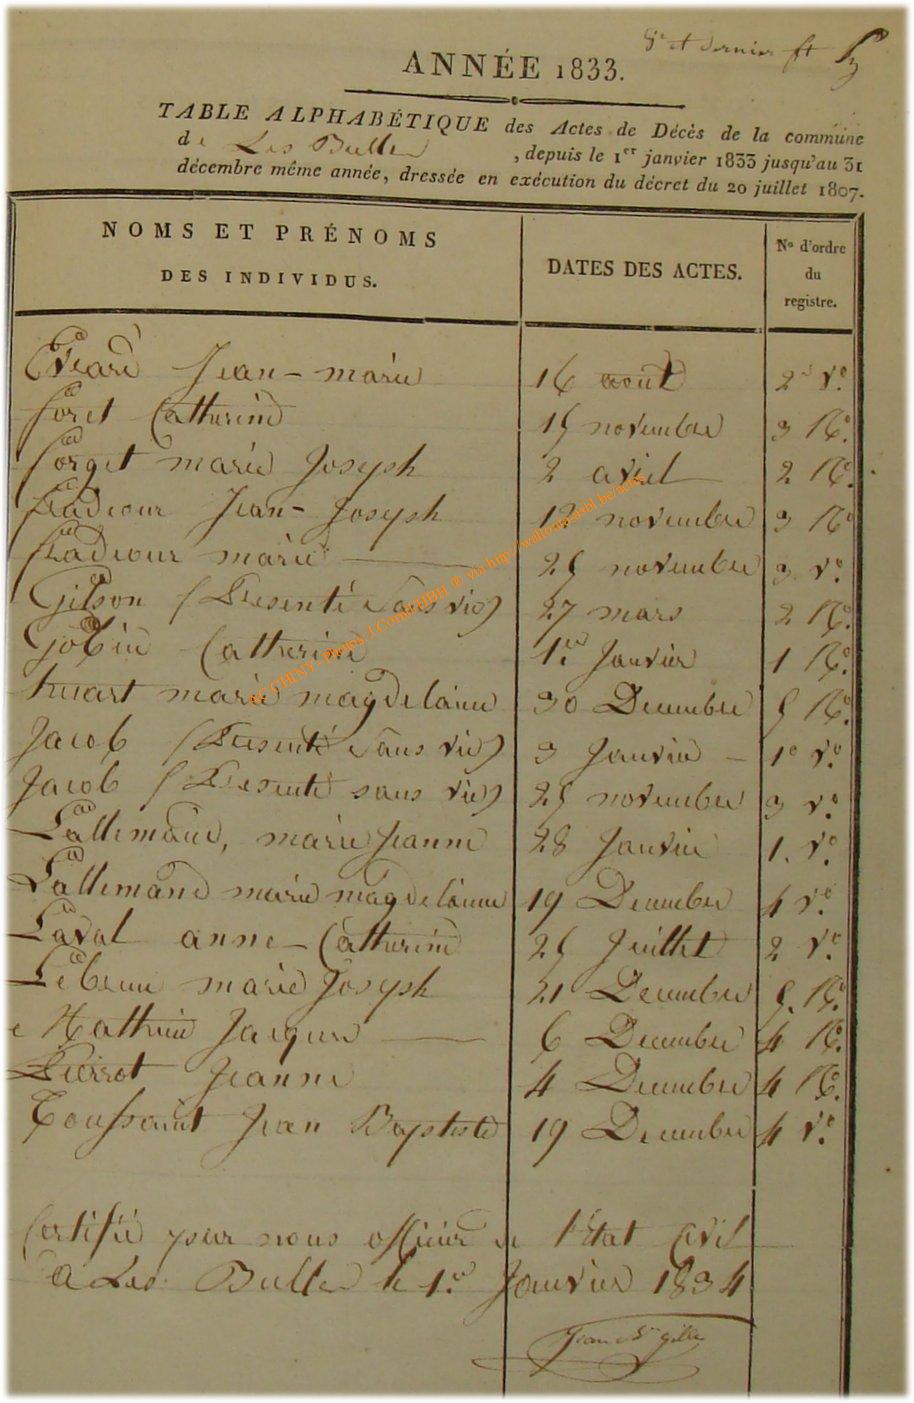 8e et dernier ft
ANNÉE 1833.
TABLE ALPHABÉTIQUE des Actes de Décès de la commune
de Les Bulles, depuis le 1er janvier 1833 jusqu'au 31
décembre même année, dressée en exécution du décret du 20 juillet 1807.
NOMS ET PRÉNOMS DES INDIVIDUS. DATES DES ACTES. No d'ordre du registre.
Evrard Jean-marie 16 août 2 Vo.
foret Catherine 15 novembre 3 Ro.
forget marie Joseph 2 avril 2 Ro.
fradcour Jean-Joseph 12 novembre 3 Ro
fradcour marie 25 novembre 3 Vo.
Gilson (Présenté sans vie) 27 mars 2 Ro.
Gobin Catherine 1er Janvier 1 Ro.
huart marie magdelaine 30 Decembre 5 Ro.
Jacob (Présenté sans vie) 3 Janvier 1o Vo.
Jacob (Présenté sans vie) 25 novembre 3 Vo.
Lallemand, marie Jeanne 28 Janvier 1. Vo.
Lallemand marie magdelaine 19 Decembre 4 Vo.
Laval anne-Catherine 25 Juillet 2 Vo.
Lebrun marie Joseph 21 Decembre 5. Ro.
Mathieu Jacques 6 Decembre 4 Ro.
Pierrot Jeanne 4 Decembre 4 Ro.
Toussaint Jean Baptiste 19 Decembre 4 Vo.
Certifié par nous officier de l'Etat Civil
a Les Bulles le 1er Janvier 1834